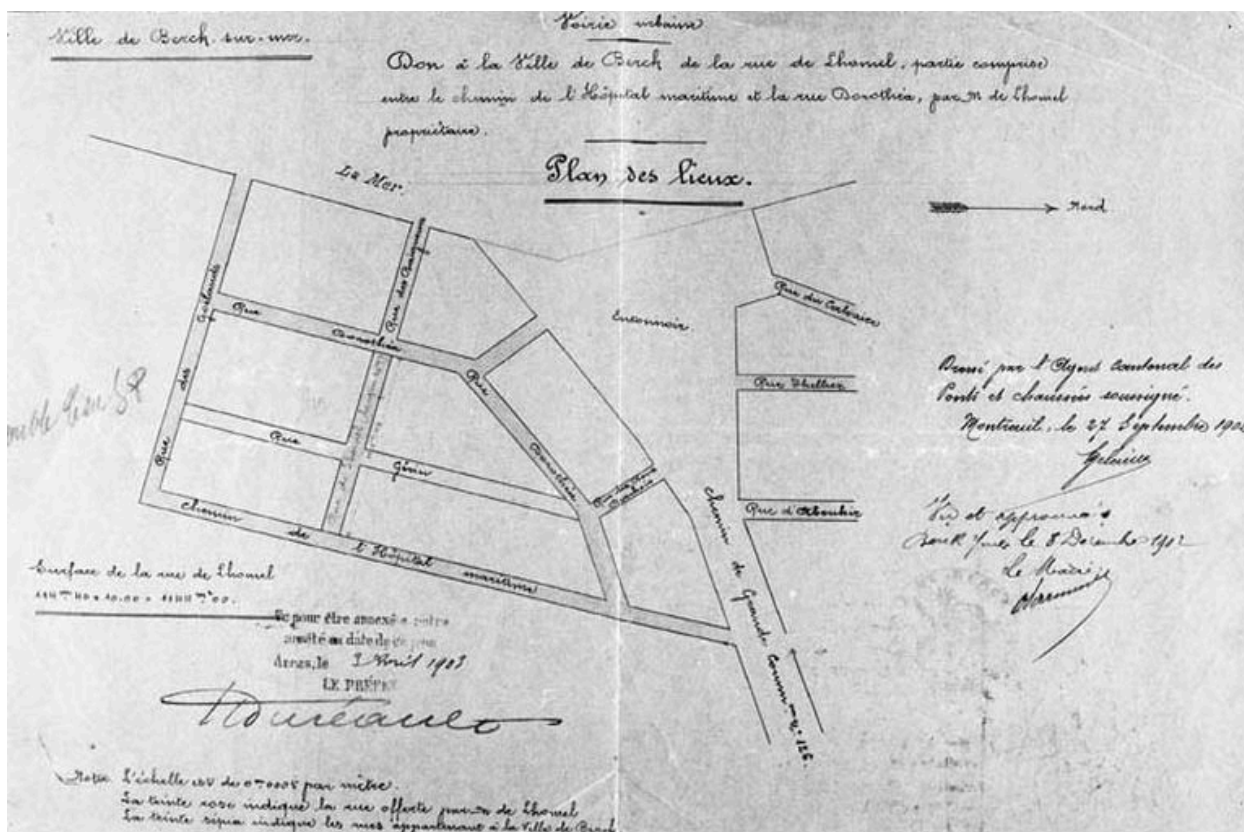 Ville de Berck-sur-mer.
Voirie urbaine
Don à la Ville de Berck de la rue de Lhomel, partie comprise
entre le chemin de l'Hôpital maritime et la rue Dorothéa, par M de Lhomel
propriétaire.
Plan des lieux.
La Mer.
Nord
Rue des Goélands
Rue Dorothéa
Rue des Baigneurs
Entonnoir
Rue du Calvaire
Rue Thellier
Rue
Rue Dorothée
Rue Gérin
Rue d'Artouhie
Chemin de l'Hôpital maritime
Chemin de Grande Common n° 126.
Dressé par l'Agent cantonal des
Ponts et chaussées soussigné.
Montreuil, le 27 Septembre
Vu et approuvé
le 8 Décembre 1902
Le Maire
Surface de la rue de Lhomel
Vu pour être annexé à notre
arrêté en date de ce jour
Arras, le 3 Avril 1903
LE PRÉFET
Nota L'échelle est de 0m0005 par mètre.
La teinte rose indique la rue offerte par M de Lhomel
La teinte sépia indique les rues appartenant à la Ville de Berck